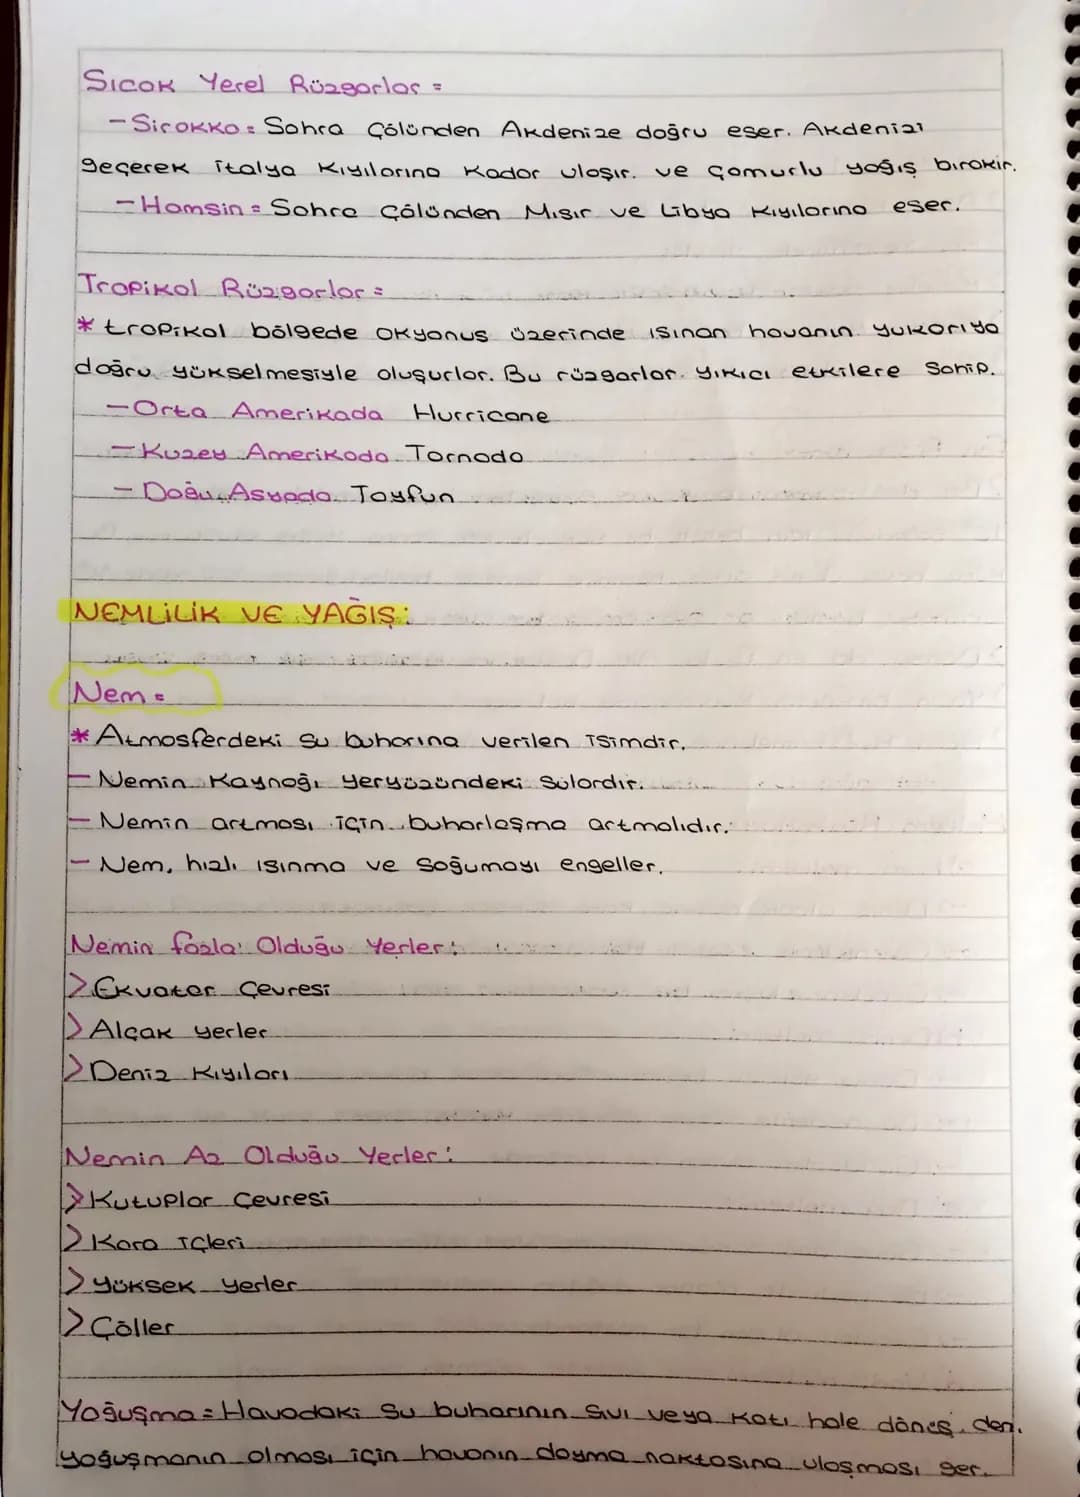 Sıcak Yerel Rüzgarlar =
- Sirokko = Sahra Çölünden Akdenize doğru eser. Akdenizi
geçerek İtalya Kıyılarına Kadar ulaşır. ve çamurlu yağış bırakır.
- Hamsin = Sahra Çölünden Mısır ve Libya Kıyılarına eser.
Tropikal Rüzgarlar =
* tropikal bölgede okyanus üzerinde ısınan havanın yukarıya
doğru yükselmesiyle oluşurlar. Bu rüzgarlar yıkıcı etkilere Sahip.
- Orta Amerikada Hurricane
- Kuzey Amerikada Tornado
- Doğu Asyada Tayfun
NEMLİLİK VE YAĞIŞ:
Nem =
* Atmosferdeki su buharına verilen isimdir.
- Nemin Kaynağı yeryüzündeki Sulardır.
- Nemin artması için buharlaşma artmalıdır.
- Nem, hızlı ısınma ve Soğumayı engeller.
Nemin fazla Olduğu Yerler:
> Ekvator Çevresi
> Alçak yerler
> Deniz Kıyıları
Nemin Az Olduğu Yerler:
> Kutuplar Çevresi
> Kara İçleri
> Yüksek yerler
> Çöller
Yoğuşma = Havadaki Su buharının Sıvı veya Katı hale dönüş. den.
yoğuşmanın olması için havanın doyma noktasına ulaşması ger.